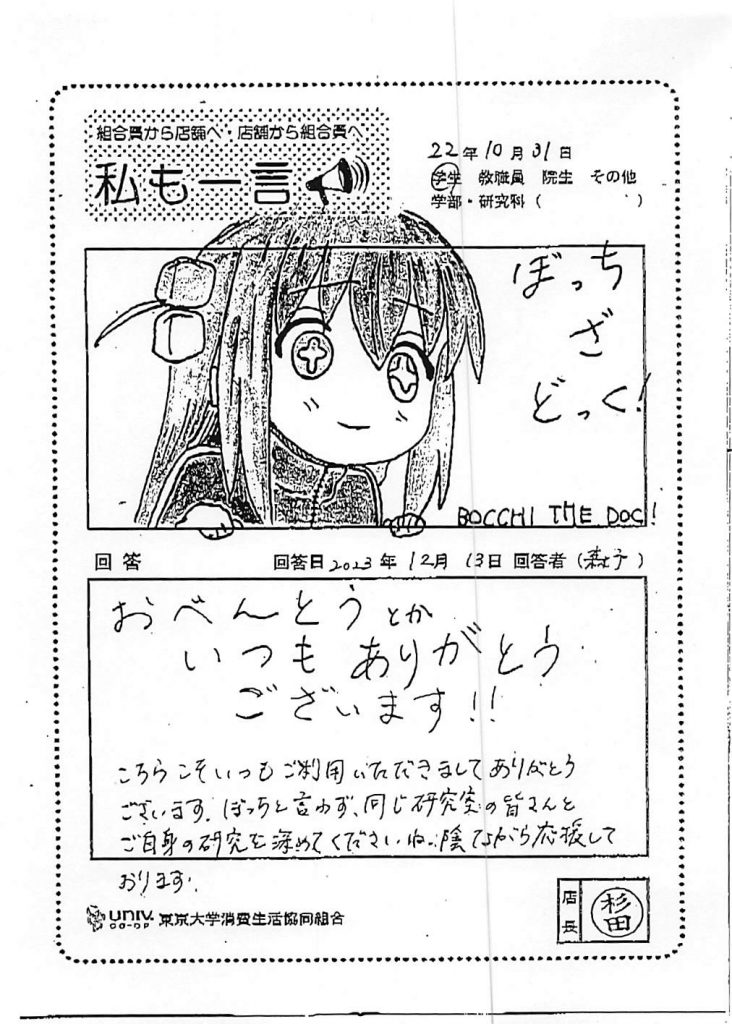 組合員から店舗へ・店舗から組合員へ
私も一言
22年10月31日
学生 教職員 院生 その他
学部・研究科（ ）
ぼっち
ざ
どっく!
BOCCHI THE DOC!
回答 回答日2023年12月13日 回答者（森子）
おべんとうとか
いつもありがとう
ございます!!
こちらこそいつもご利用いただきましてありがとう
ございます。ぼっちと言わず、同じ研究室の皆さんと
ご自身の研究を深めてくださいね。陰ながら応援して
おります。
univ.
CO-OP
東京大学消費生活協同組合
店長
杉田